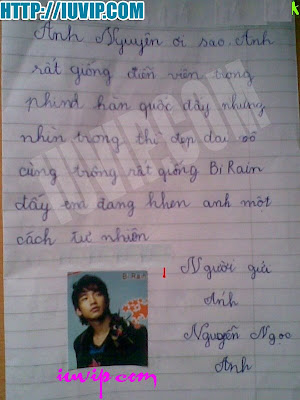 HTTP://IUVIP.COM
k
Anh Nguyên ơi sao Anh
rất giống diễn viên trong
phim hàn quốc đấy nhưng
nhìn trong thì đẹp dai vô
cùng trông rất giống Bi Rain
đấy em đang khen anh một
cách tư nhiên
IUVIP.COM
Người gửi
Anh
Nguyễn Ngọc
Anh
Bi Rain
iuvip.com